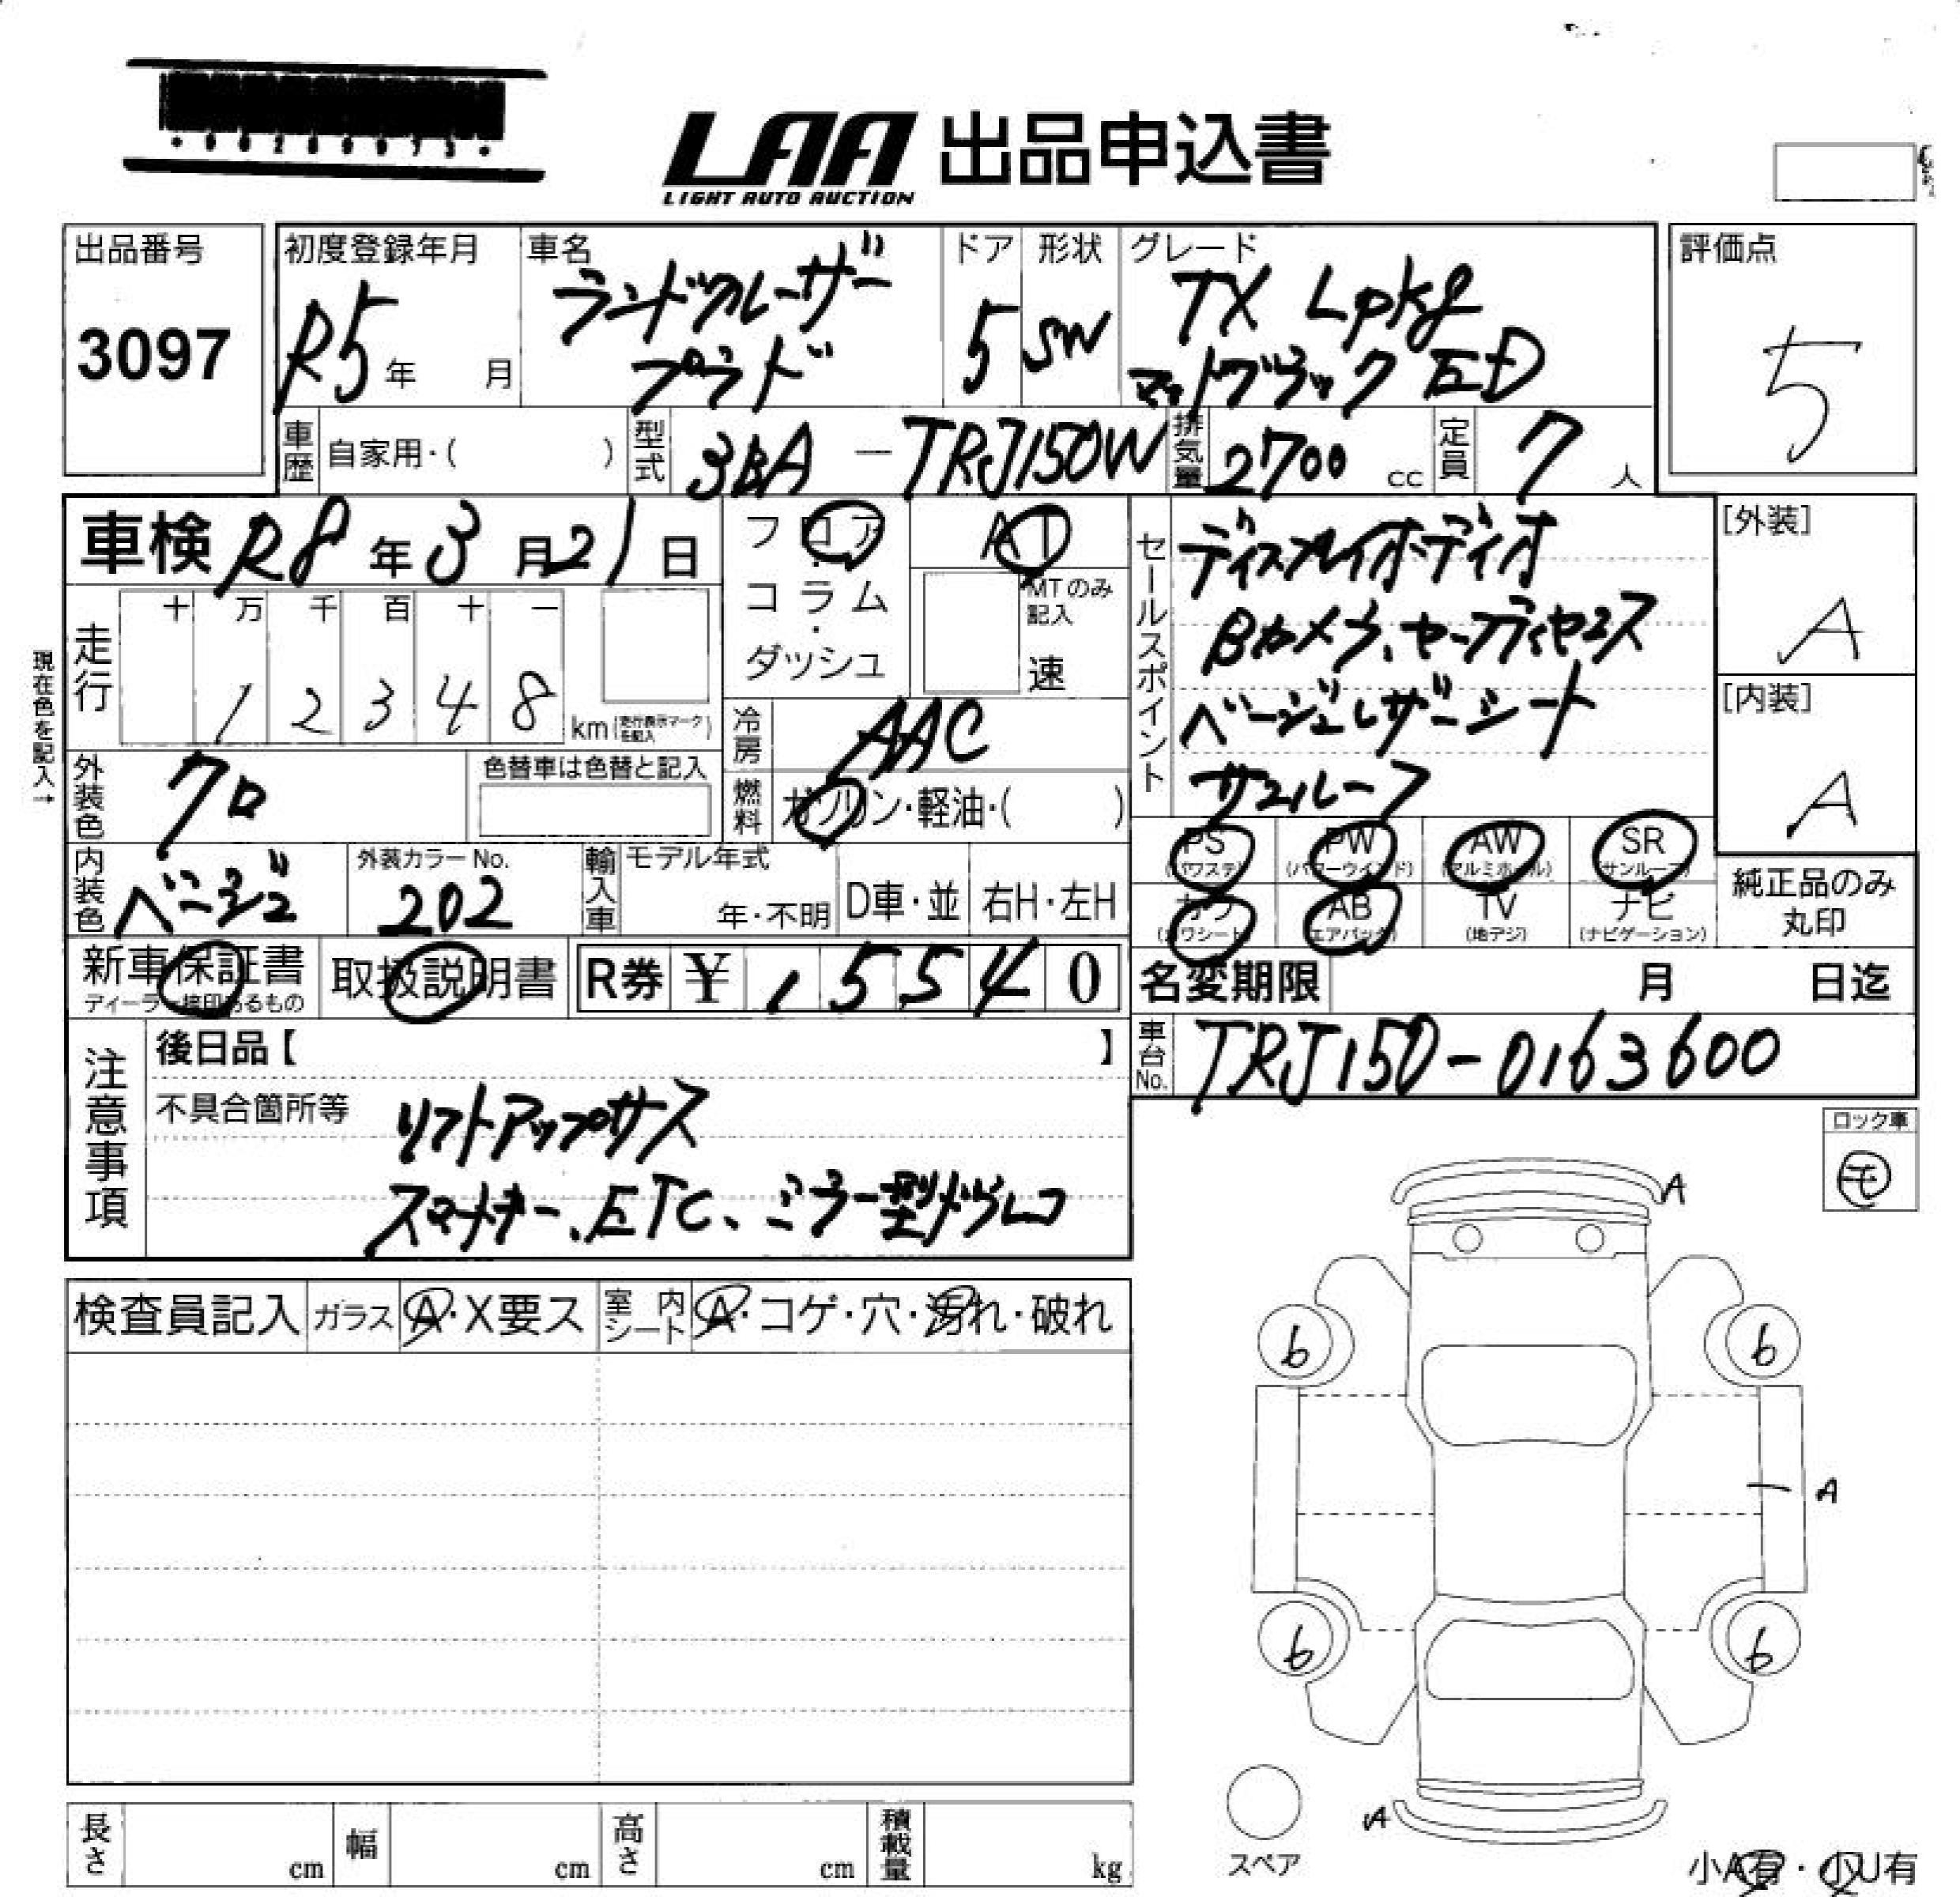 LAA 出品申込書
LIGHT AUTO AUCTION
出品番号
3097
初度登録年月
R5年 月
車名
ランドクルーザー
プラド
ドア
5
形状
SW
グレード
TX Lpkg
マットブラック ED
評価点
5
車歴 自家用・( )
型式 3BA-TRJ150W
排気量 2700 cc
定員 7 人
車検 R8年3月21日
フロア
・
コラム
・
ダッシュ
AT
MTのみ
記入
速
セールスポイント
ディスプレイオーディオ
Bカメラ、セーフティセンス
ベージュレザーシート
サンルーフ
[外装]
A
[内装]
A
現在色を記入→
走行
十 万 千 百 十 一
1 2 3 4 8 km (走行表示マークを記入)
冷房 AAC
燃料 ガソリン・軽油・( )
外装色 クロ
色替車は色替と記入
内装色 ベージュ
外装カラーNo.
202
輸入車
モデル年式
年・不明
D車・並
右H・左H
PS
(パワステ)
PW
(パワーウインド)
AW
(アルミホイール)
SR
(サンルーフ)
カワ
(カワシート)
AB
(エアバッグ)
TV
(地デジ)
ナビ
(ナビゲーション)
純正品のみ
丸印
新車保証書
ディーラー捺印あるもの
取扱説明書
R券 ¥ 15540
名変期限 月 日迄
車台No. TRJ150-0163600
注意事項
後日品【 】
不具合箇所等 リフトアップサス
スマートキー、ETC、ミラー型ドラレコ
ロック車
モ
検査員記入
ガラス A・X要ス
室内シート A・コゲ・穴・汚れ・破れ
A
6 6
A
6 6
A
スペア
小A有・小U有
長さ cm
幅 cm
高さ cm
積載量 kg